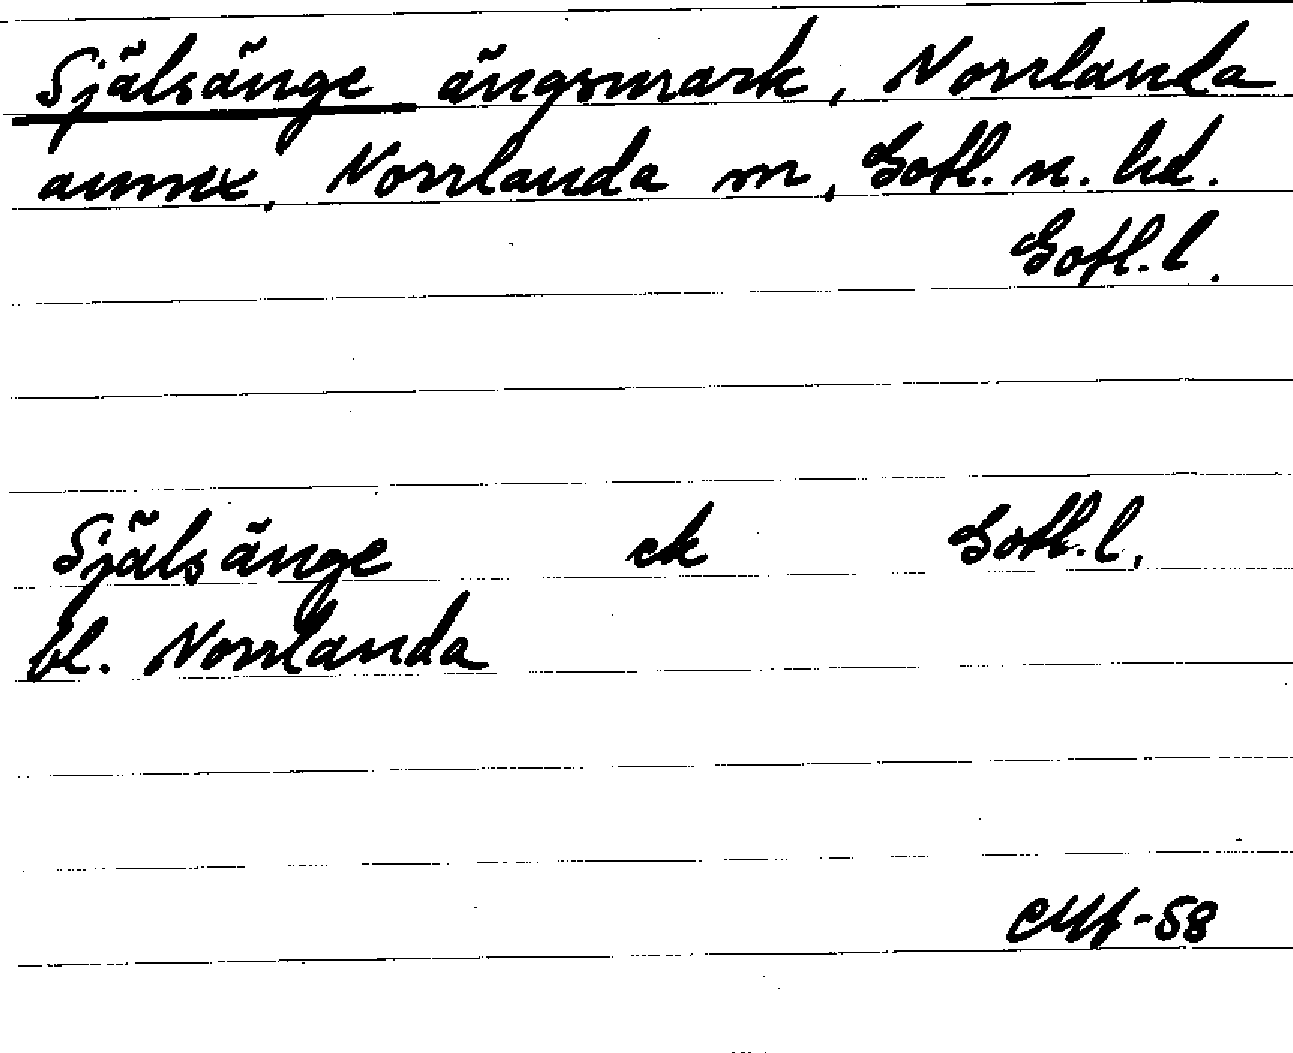 Själsänge ängsmark, Norrlanda
annex, Norrlanda m, Gotl. n. hd.
Gotl. l.
Själsänge ek Gotl. l.
bl. Norrlanda
-58